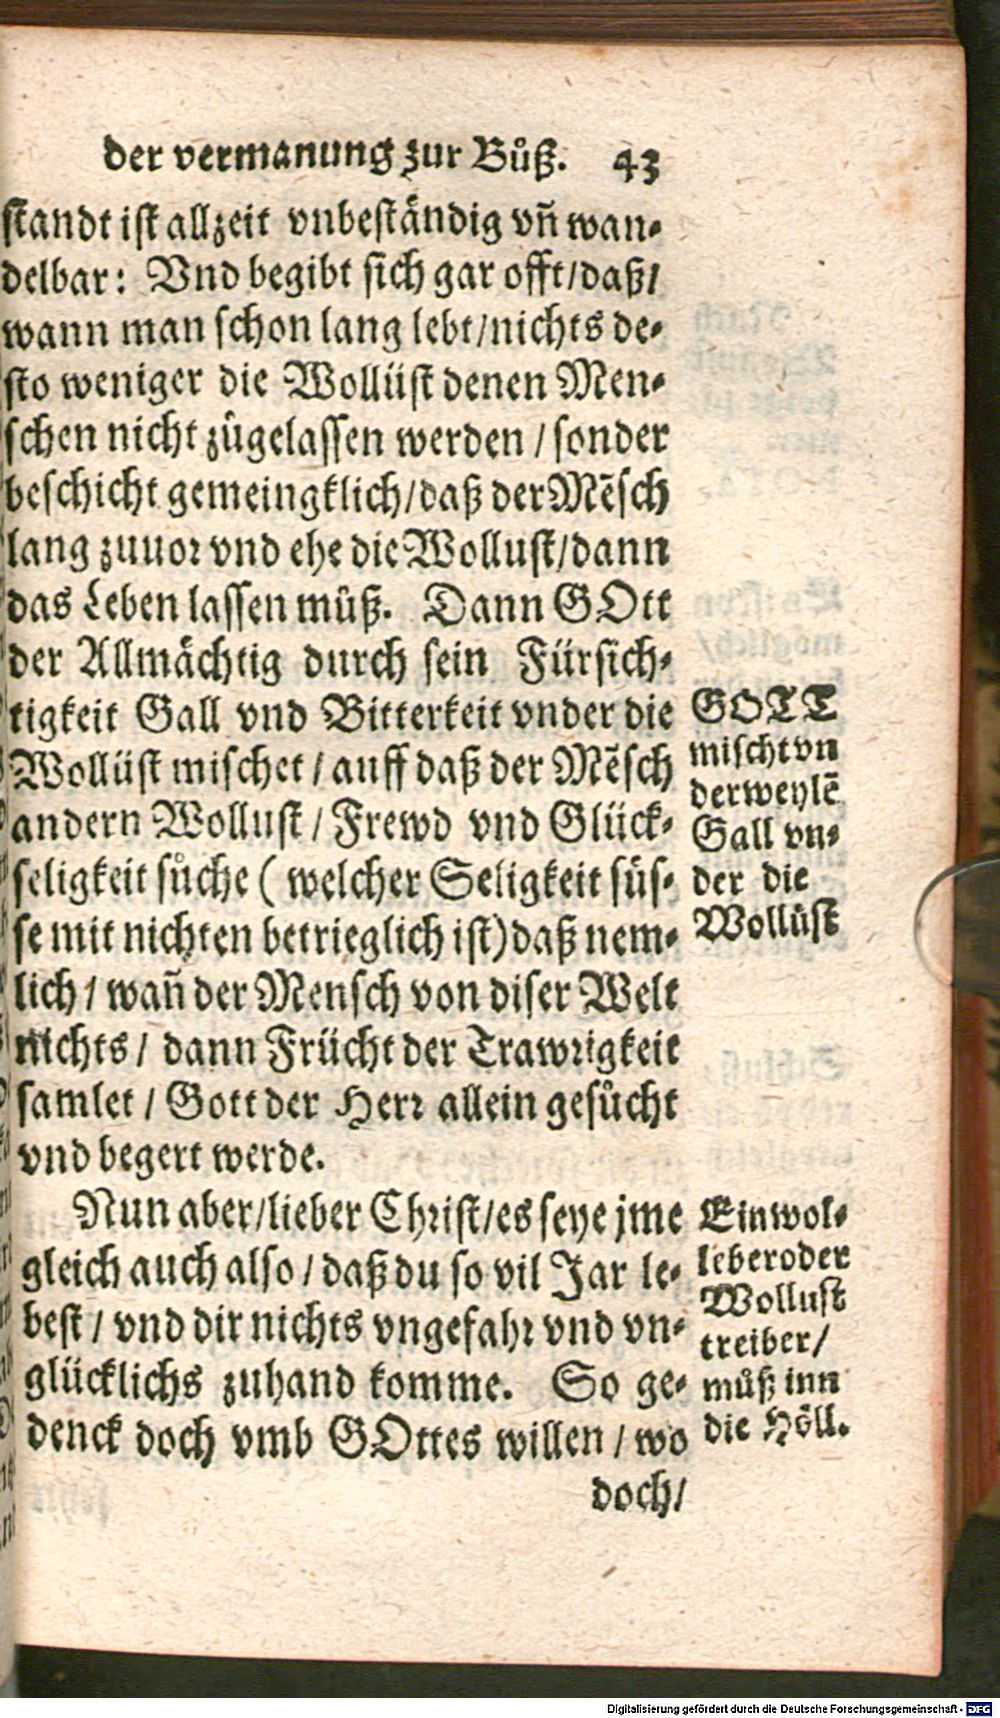 der vermanung zur Bůß. 43
standt ist allzeit vnbeständig vñ wan-
delbar: Vnd begibt sich gar offt/daß/
wann man schon lang lebt/nichts de-
sto weniger die Wollüst denen Men-
schen nicht zůgelassen werden / sonder
beschicht gemeingklich/daß der Mẽsch
lang zuuor vnd ehe die Wollust/dann
das Leben lassen můß. Dann GOtt
der Allmächtig durch sein Fürsich-
tigkeit Gall vnd Bitterkeit vnder die
Wollüst mischet / auff daß der Mẽsch
andern Wollust / Frewd vnd Glück-
seligkeit sůche ( welcher Seligkeit süs-
se mit nichten betrieglich ist) daß nem-
lich / wañ der Mensch von diser Welt
nichts / dann Frücht der Trawrigkeit
samlet / Gott der Herr allein gesůcht
vnd begert werde.
Nun aber/lieber Christ/es seye jme
gleich auch also / daß du so vil Jar le-
best / vnd dir nichts vngefahr vnd vn-
glücklichs zuhand komme. So ge-
denck doch vmb GOttes willen / wo
doch/
GOTT
mischt vn
derweylẽ
Gall vn-
der die
Wollüst
Ein wol-
leber oder
Wollust
treiber/
můß inn
die Höll.
Digitalisierung gefördert durch die Deutsche Forschungsgemeinschaft - DFG